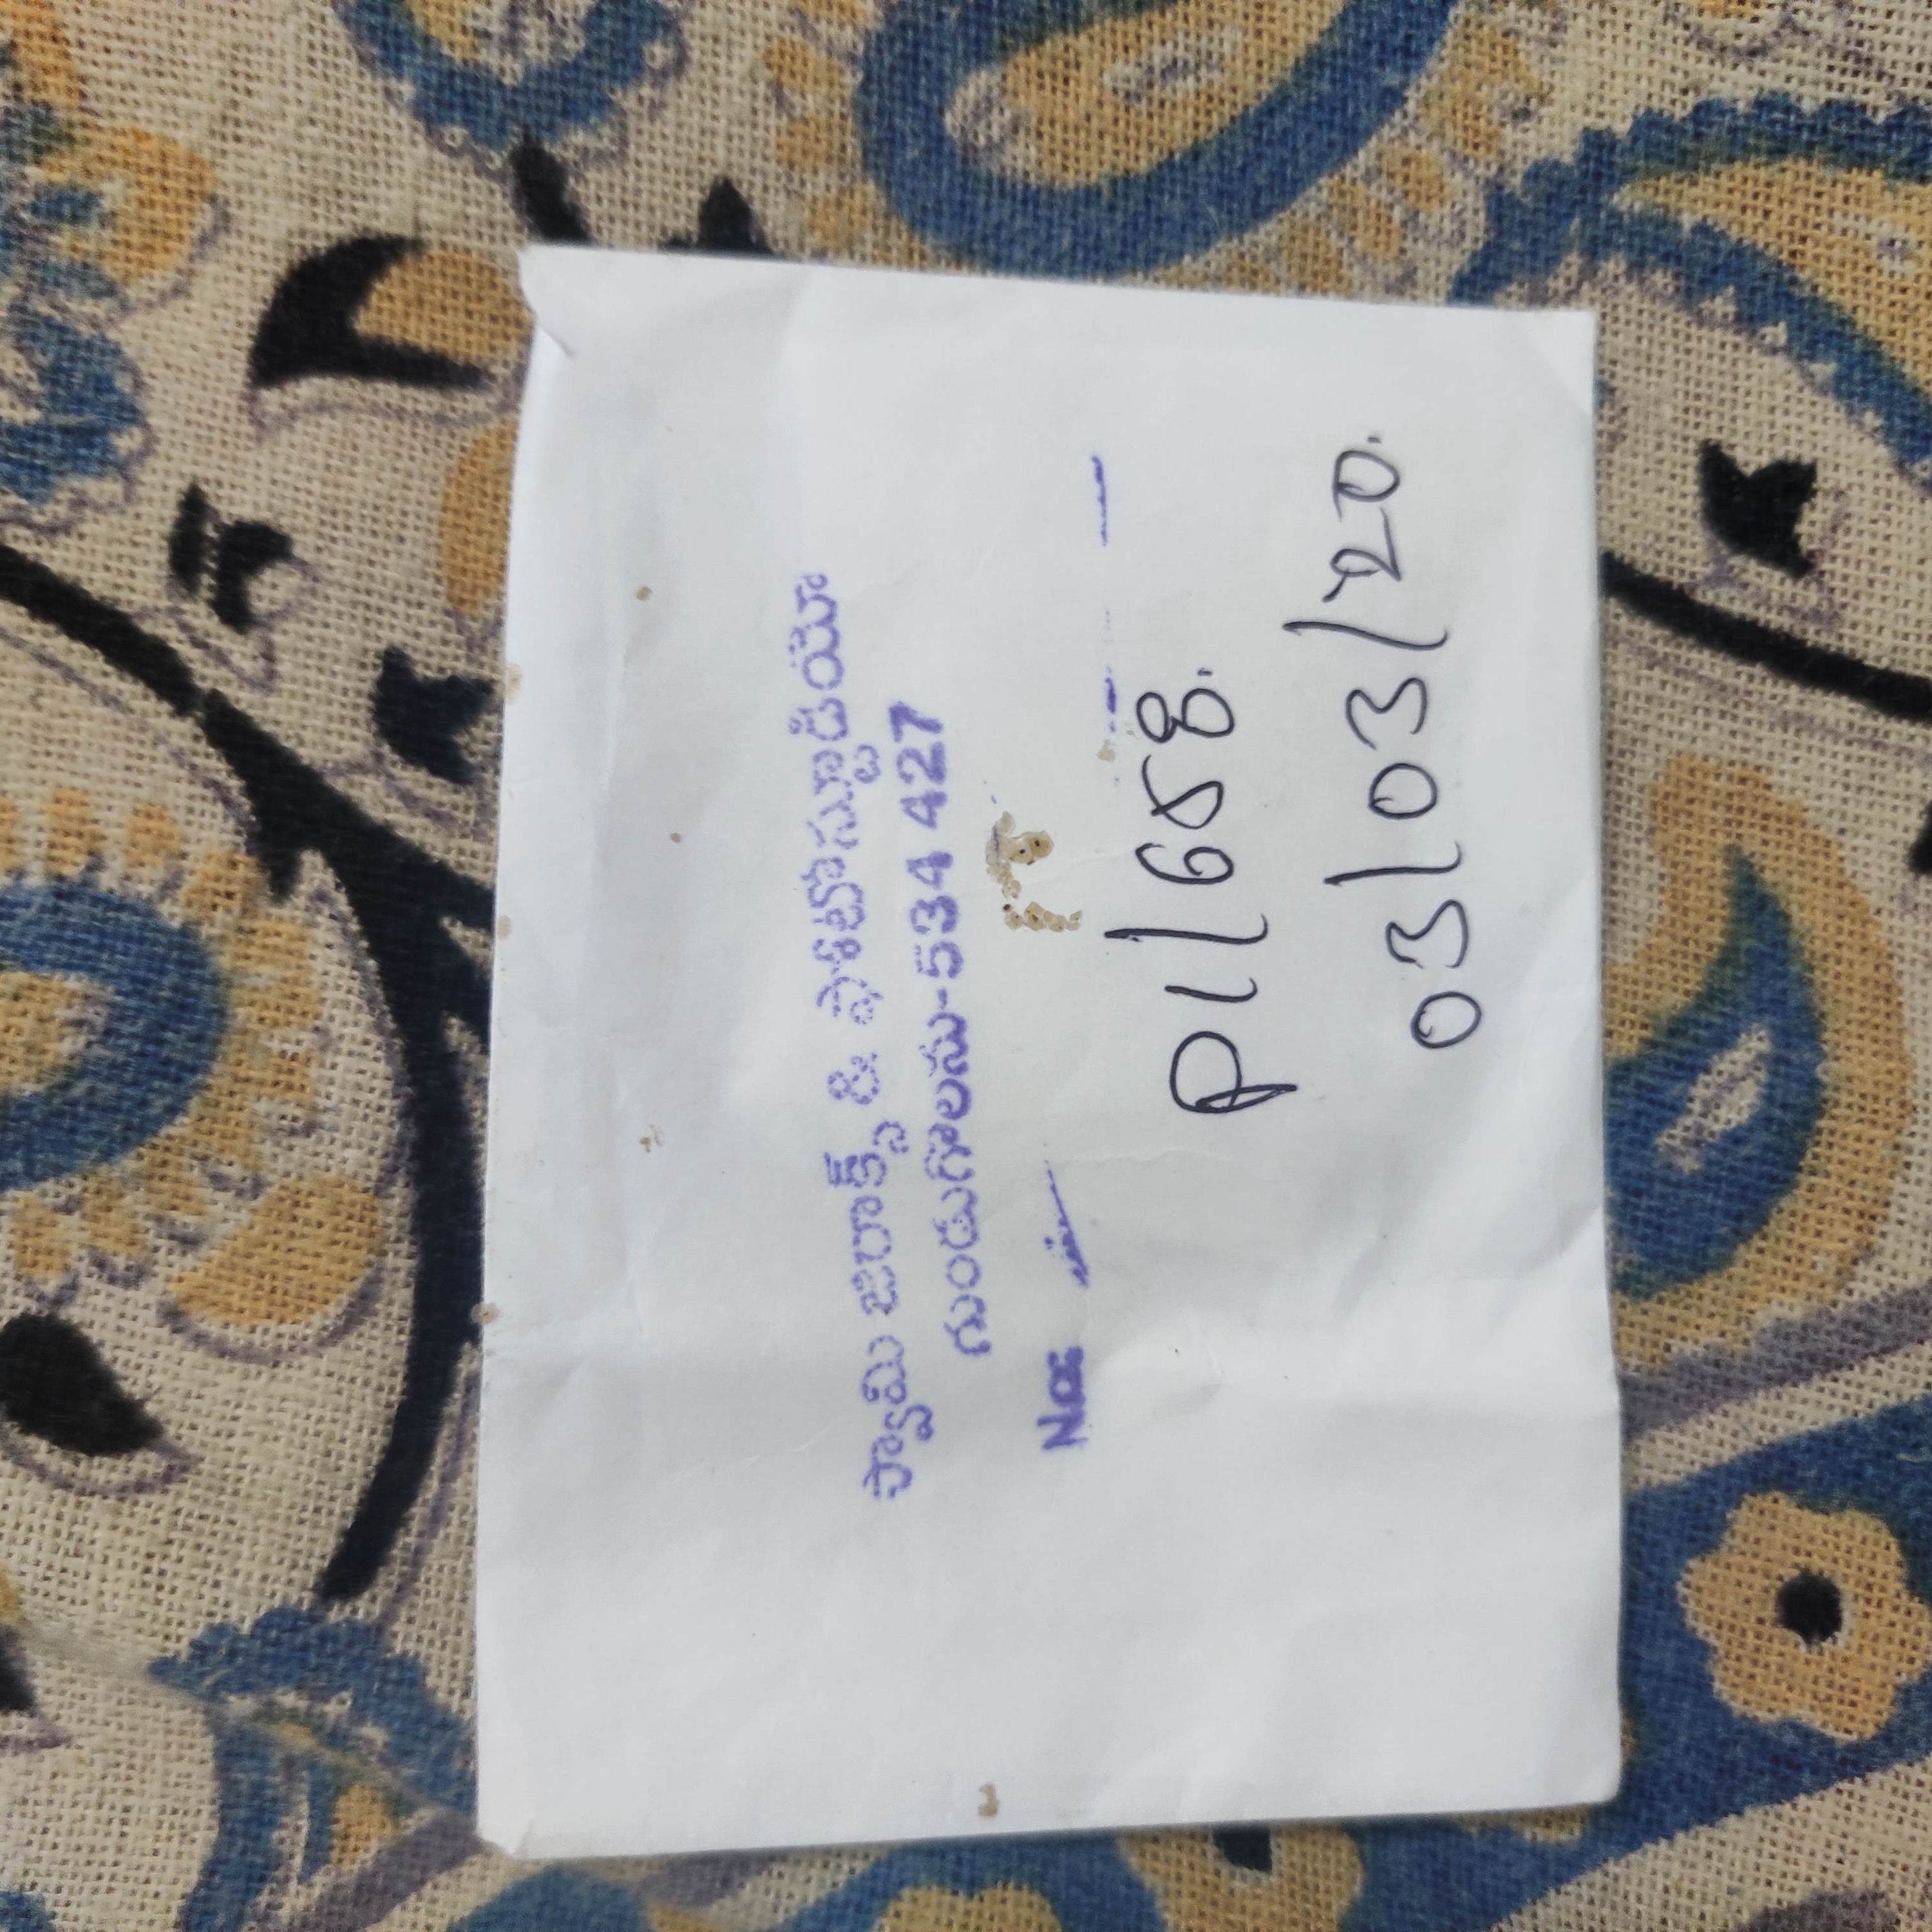 స్వామి జిరాక్స్ & ఫోటోస్టూడియో
గుండుగొలను-534 427
No:
P1/658.
03/03/20.